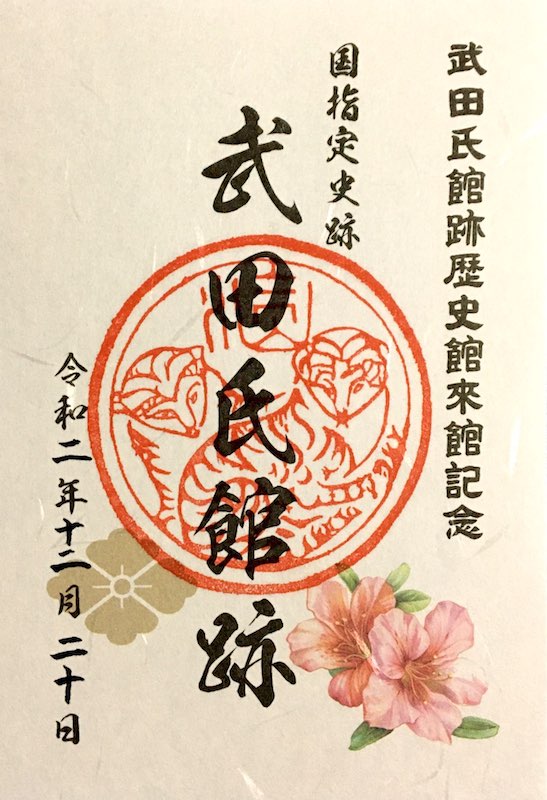 武田氏館跡歴史館来館記念
国指定史跡
武田氏館跡
令和二年十二月二十日